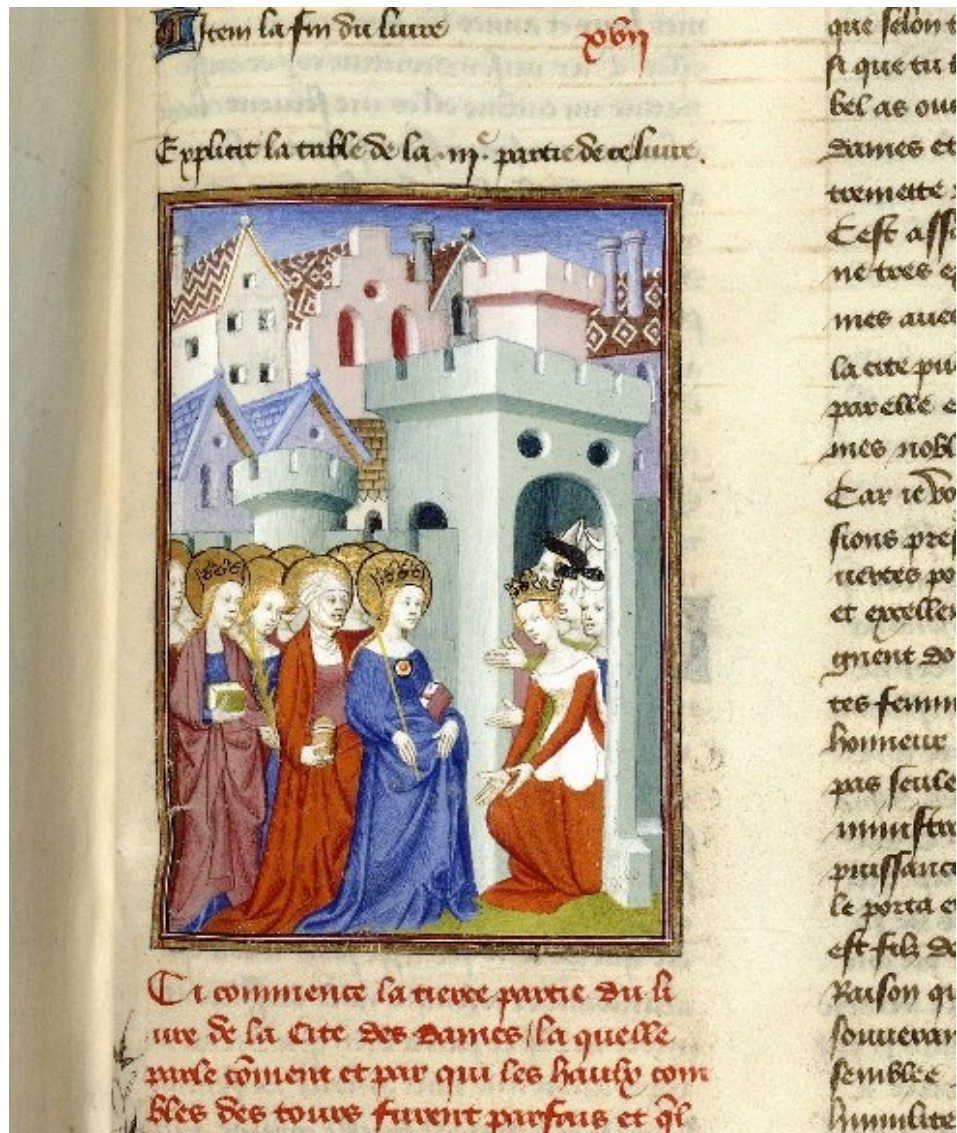 Item la fin du liure xvii
Explicit la table de la .iije. partie de ce liure.
Ci commence la tierce partie du li
ure de la Cite des dames / la quelle
parle cōment et par qui les haulx com
bles des tours furent parfais et q̄l
que selon
si que tu
bel as
dames et
tremette
Cest
ne tres
mes auec
la cite
par elle
mes
Car ie
sions
uertes
et
gnent
tes
honneur
pas seule
puissance
le porta
est filz de
Raison
souueran
semblee
humilite